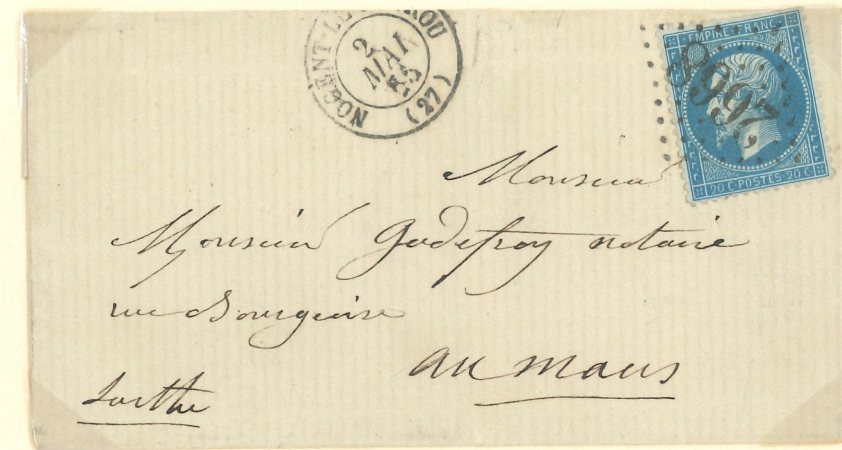 NOGENT-LE-ROTROU
2
MAI
65
(27)
EMPIRE FRANC
2668
20 C POSTES 20 C
Monsieur
Monsieur Godefroy notaire
rue Bourgeoise
au mans
Sarthe